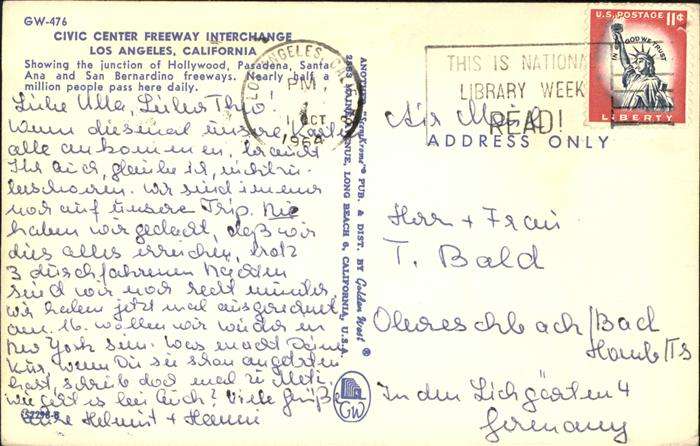 GW-476
CIVIC CENTER FREEWAY INTERCHANGE
LOS ANGELES, CALIFORNIA
Showing the junction of Hollywood, Pasadena, Santa
Ana and San Bernardino freeways. Nearly half a
million people pass here daily.
Liebe Ulla, Lieber Theo.
Wenn diesmal unsere Karten
alle ankommen, braucht
Ihr Euch, glaube ich, nicht zu
beschweren. Wir sind immer
noch auf unsere Trip. Nie
haben wir gedacht, daß wir
dies alles erreichen, trotz
3 durchfahrenen Nächten
sind wir noch recht munter.
Wir haben jetzt mal ausgerechnet
am 16. wollen wir wieder in
New York sein. Was macht Deine
Kur, wenn Du sie schon angetreten
hast, schreib doch mal zu
wie geht es bei Euch? Viele Grüße
Eure Helmut + Hanni
S2298-8
LOS ANGELES, CALIF.
PM
1 OCT
1964
ANOTHER "Kromekolor" PUB. & DIST. BY Golden West ®
MAINE AVENUE, LONG BEACH 6, CALIFORNIA, U.S.A.
GW
THIS IS NATIONAL
LIBRARY WEEK
READ!
U.S. POSTAGE 11¢
IN GOD WE TRUST
LIBERTY
Air Mail
ADDRESS ONLY
Herr + Frau
T. Bald
Obereschbach/Bad
Homb Ts
In den Lichgärten 4
Germany